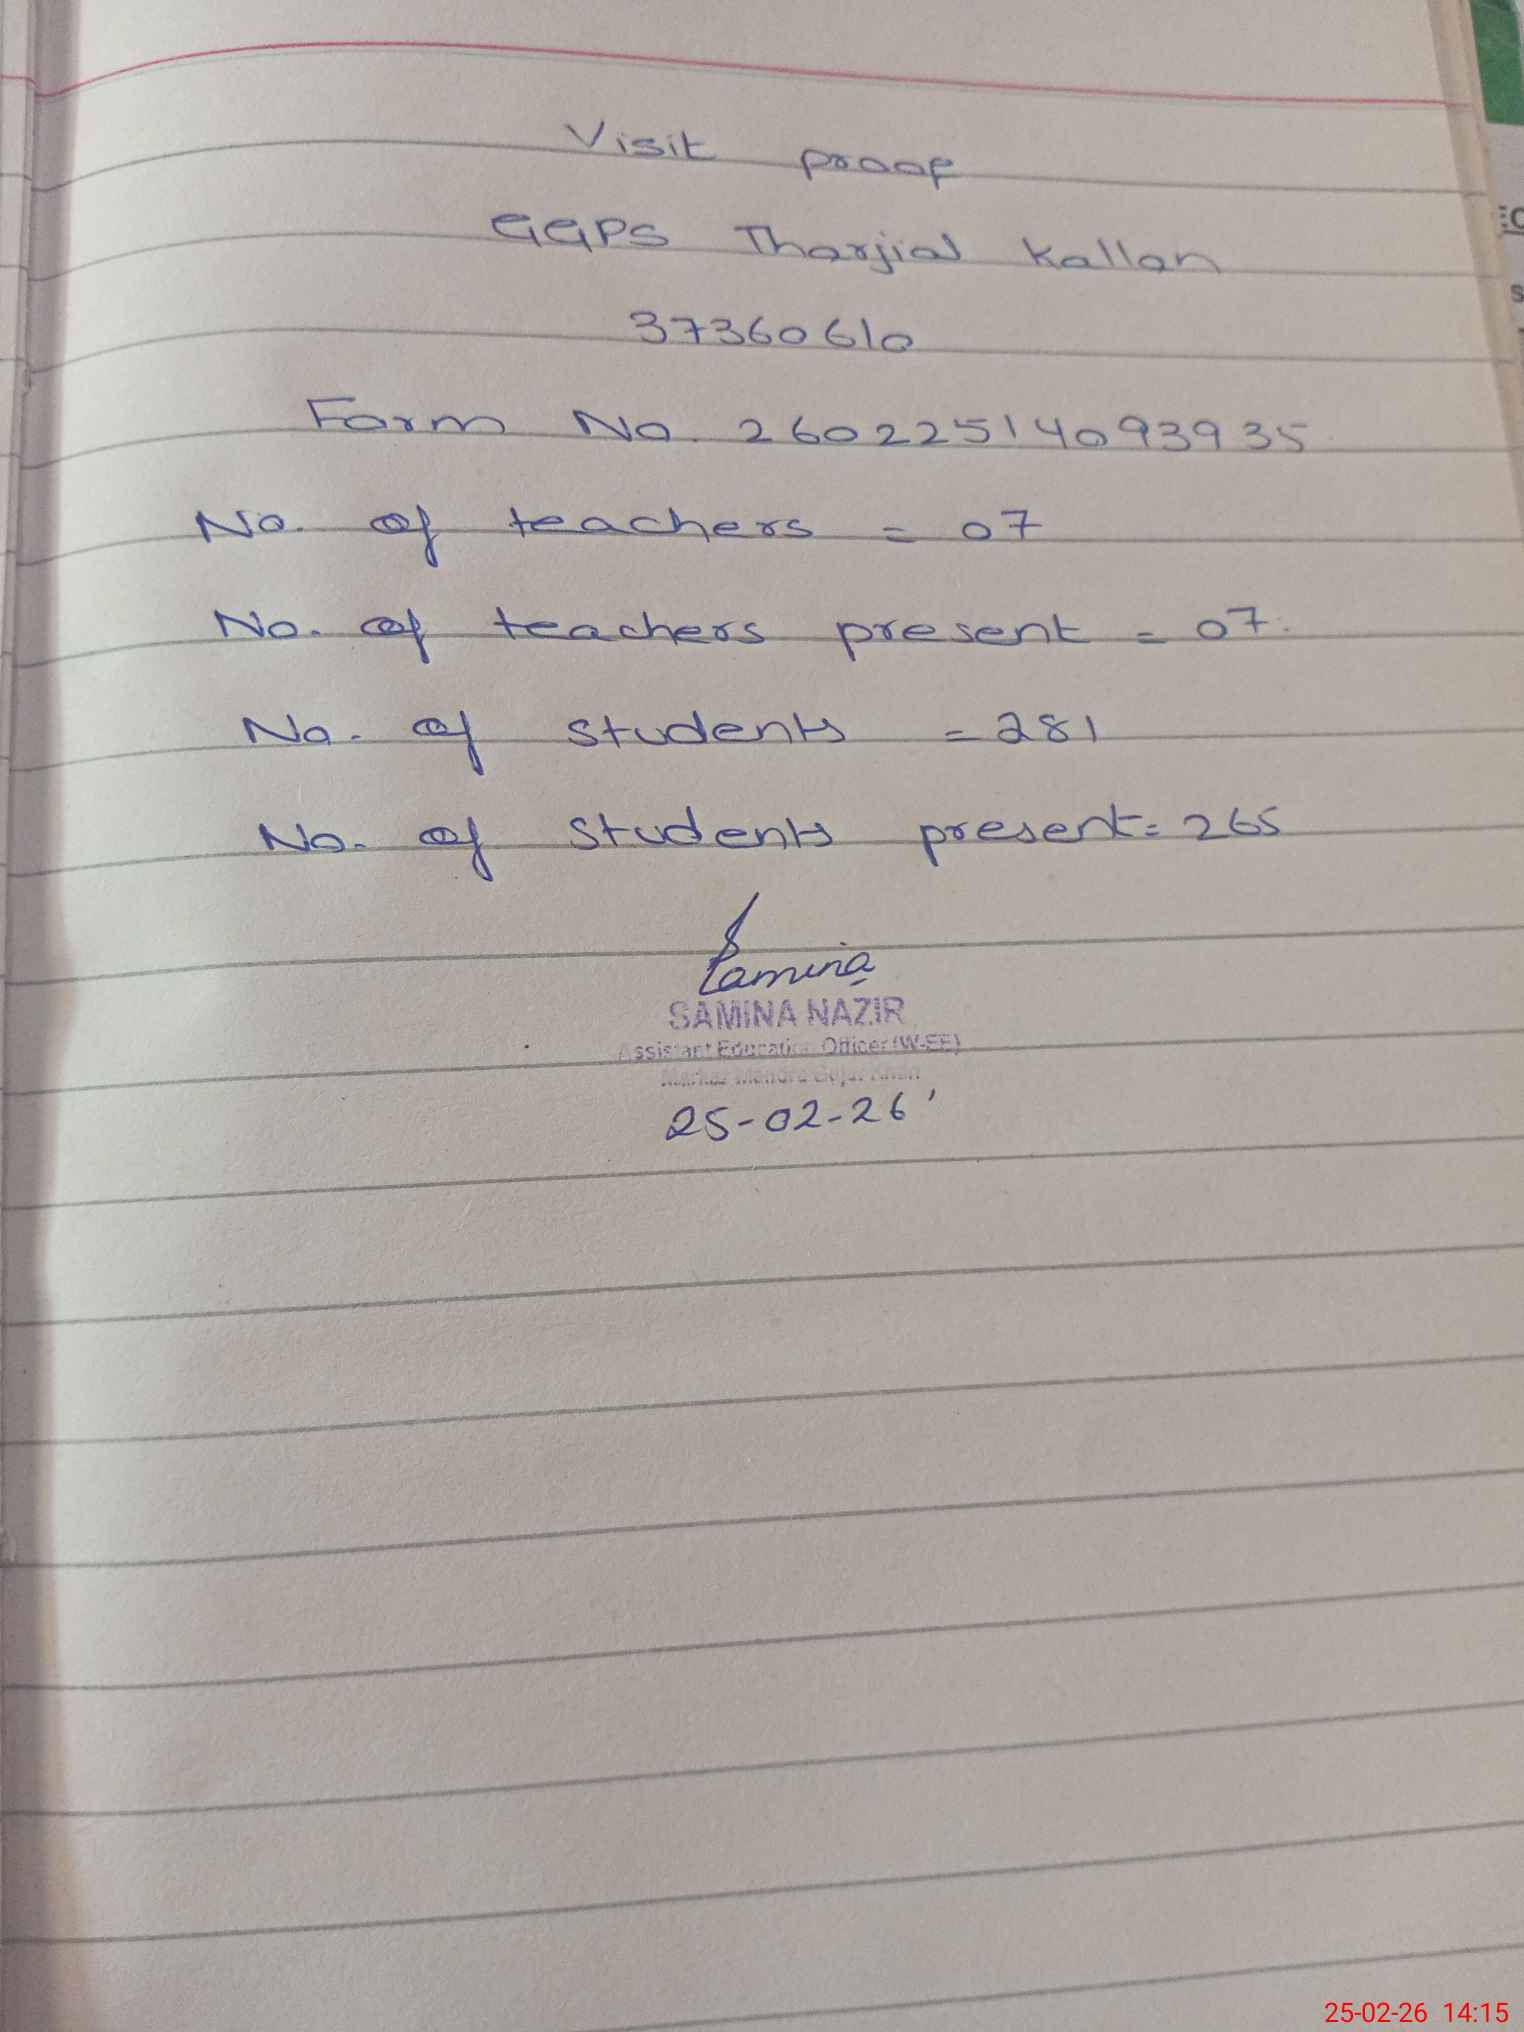 Visit proof
GGPS Tharjial Kallan
37360610
Form No. 26022514093935
No. of teachers = 07
No. of teachers present = 07.
No. of students = 281
No. of students present = 265
Samina
SAMINA NAZIR
Assistant Education Officer (W-EE)
Markaz Mandra Gujar Khan
25-02-26
25-02-26 14:15